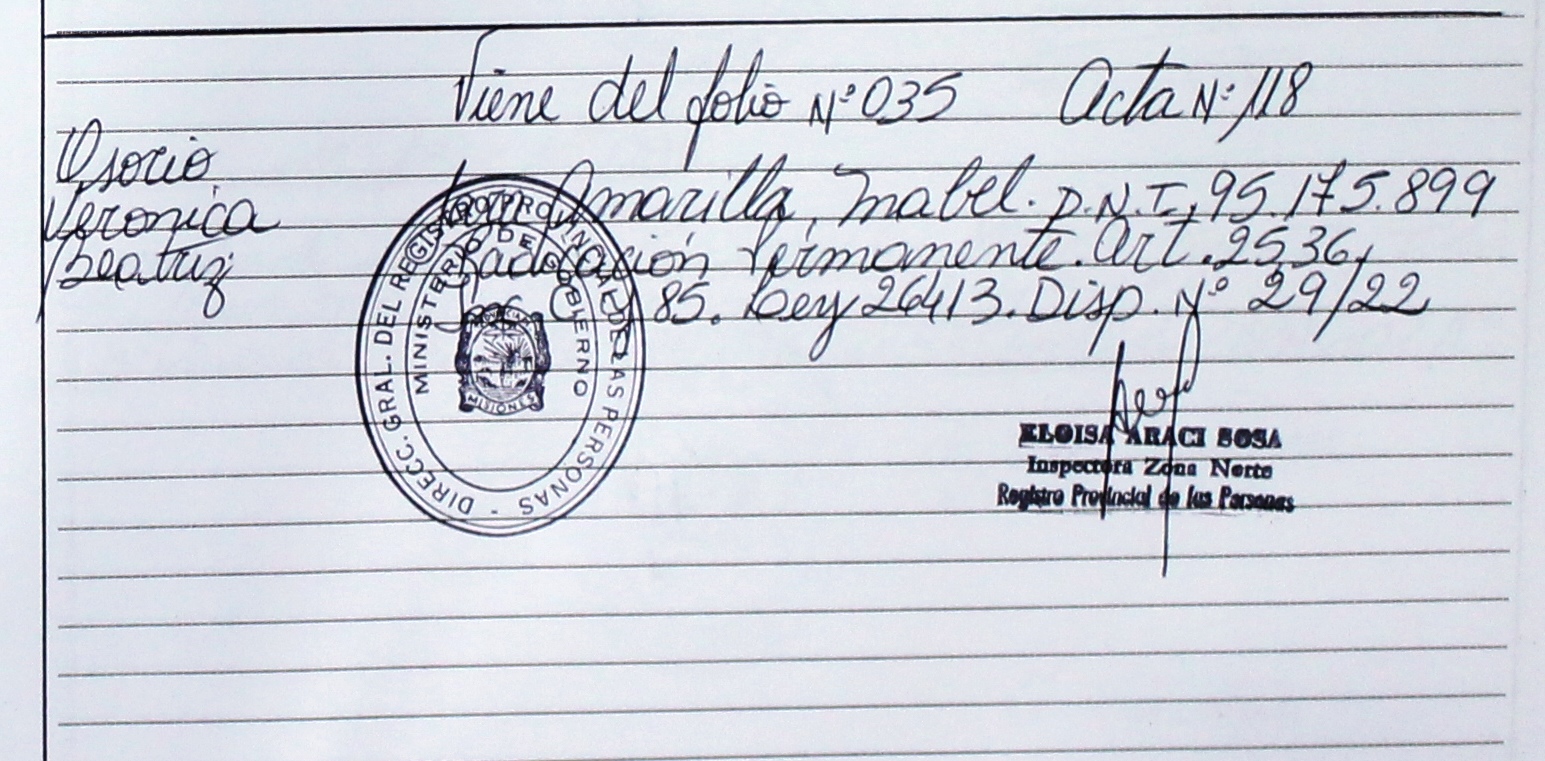 Viene del folio Nº 035 Acta Nº 118
Osorio
Veronica
Beatriz
Amarilla, Mabel. D.N.I. 95.175.899
Radicación Permanente. Art. 2536,
85. Ley 26413. Disp. Nº 29/22
DIRECC. GRAL. DEL REGISTRO PROVINCIAL DE LAS PERSONAS -
MINISTERIO DE GOBIERNO
MISIONES
ELOISA ARACI SOSA
Inspectora Zona Norte
Registro Provincial de las Personas